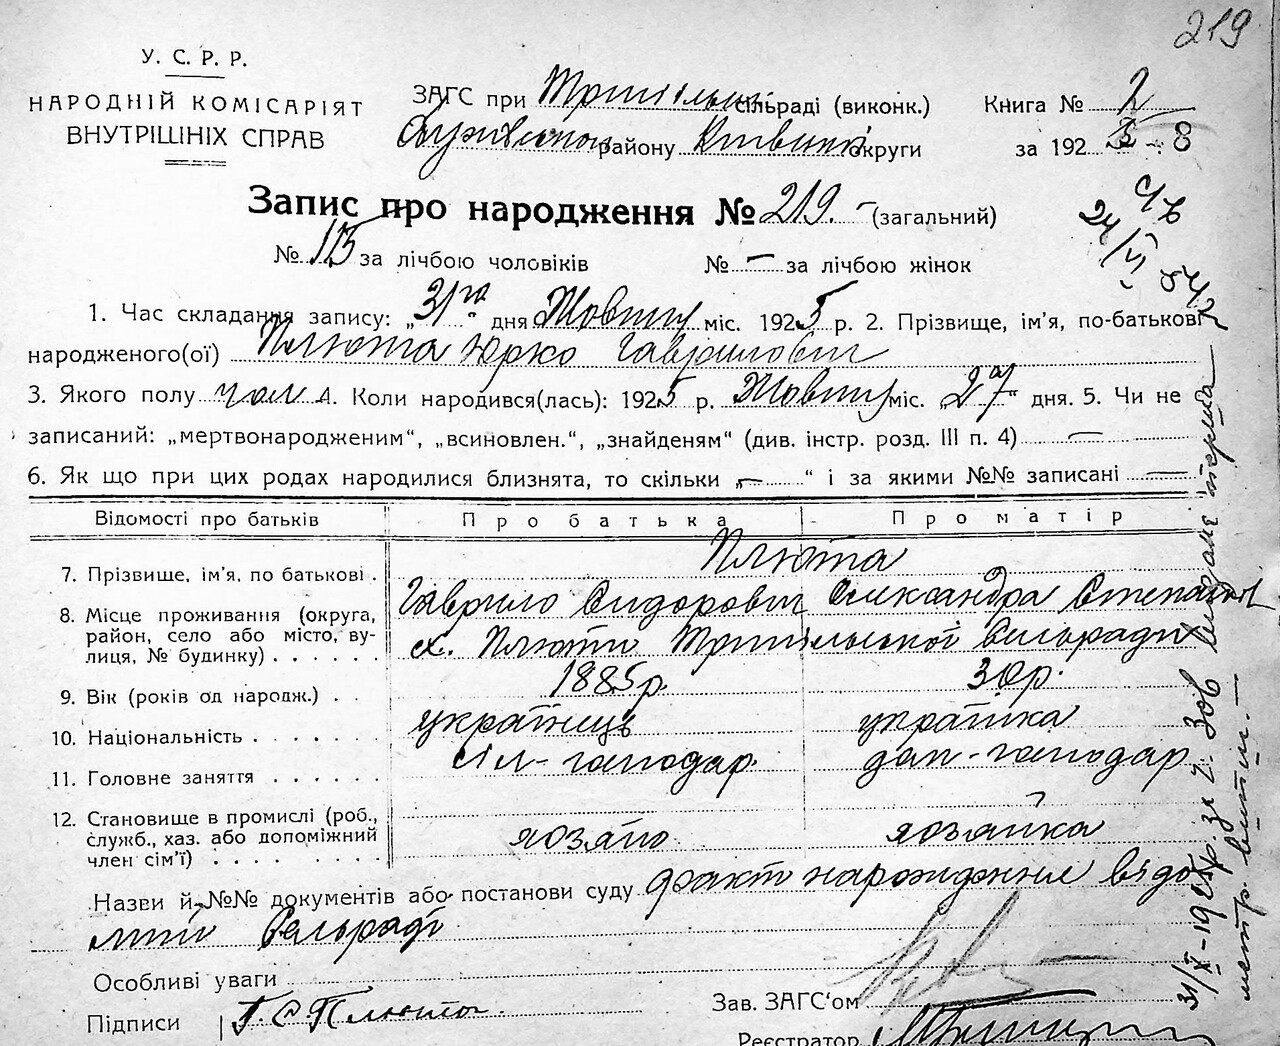 219
У. С. Р. Р.
НАРОДНІЙ КОМІСАРІЯТ
ВНУТРІШНІХ СПРАВ
ЗАГС при Трипільск. сільраді (виконк.)
району Київської округи
Книга № 2
за 1925 - 8
Запис про народження № 219. - (загальний)
№ 115 за лічбою чоловіків № - за лічбою жінок
1. Час складання запису: „31го“ дня Жовтня міс. 1925 р. 2. Прізвище, ім'я, по-батькові
народженого(ої) Плюта Юрко Гаврилович
3. Якого полу чол 4. Коли народився(лась): 1925 р. Жовтня міс. „27“ дня. 5. Чи не
записаний: „мертвонародженим“, „всиновлен.“, „знайденям“ (див. інстр. розд. III п. 4) —
6. Як що при цих родах народилися близнята, то скільки „—“ і за якими №№ записані —
Відомості про батьків Про батька Про матір
Плюта
7. Прізвище, ім'я, по батькові . Гаврило Сидорович Олександра Степанов
8. Місце проживання (округа, район, село або місто, вулиця, № будинку) . . . . . . х. Плюти Трипільської Сільради
9. Вік (років од народж.) . . 1885р. 30р.
10. Національність . . . . . . українець українка
11. Головне заняття . . . . . . сіл-господар дом-господар
12. Становище в промислі (роб., служб., хаз. або допоміжний член сім'ї) . . . . . . хозяїн хозяйка
Назви й №№ документів або постанови суду факт народження відо
мий Сельраді
Особливі уваги
Підписи Г. С Плюта
Зав. ЗАГС'ом
Реєстратор
31/X-1925р. за №
метр. витяг. —